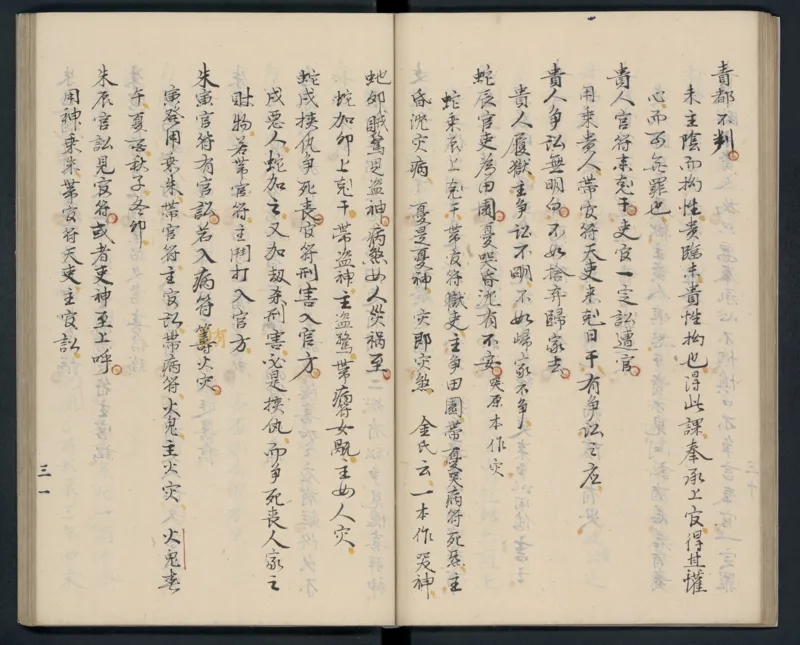 青都不判
未主陰而拘性貴臨未貴性拘也得此課奉承上官得其懽
心而可無罪也
貴人官符未尅干吏官一定訟遭官
用乘貴人帶官符天吏来尅日干有爭訟之应
貴人爭訟無明白不如捨弃歸家去
貴人履獄主爭訟不明不如歸家不爭
蛇辰官吏為田園憂哭昏沈有不安哭原本作灾
蛇乘辰上尅干帶官符獄吏主爭田園帶憂哭病符死㷊主
昏沈灾病 憂是憂神 灾即灾煞 金氏云一本作哭神
虵卯賊驚是盗神病煞女人災禍至
蛇加卯上尅干帶盗神主盗驚帶病符女眡主女人灾
蛇戌挾仇爭死喪官符刑害入官方
戌惡人蛇加之又加刼煞刑害必是挾仇而爭死喪人家之
財物若帶官符主鬥打入官方
朱寅官符有官訟若入病符籌火灾
寅發用乘朱帶官符主官訟帶病符火鬼主火灾 火鬼春
午夏酉秋子冬卯
朱辰官訟見官符或者吏神至上呼
用神乘朱帶官符天吏主官訟
三一